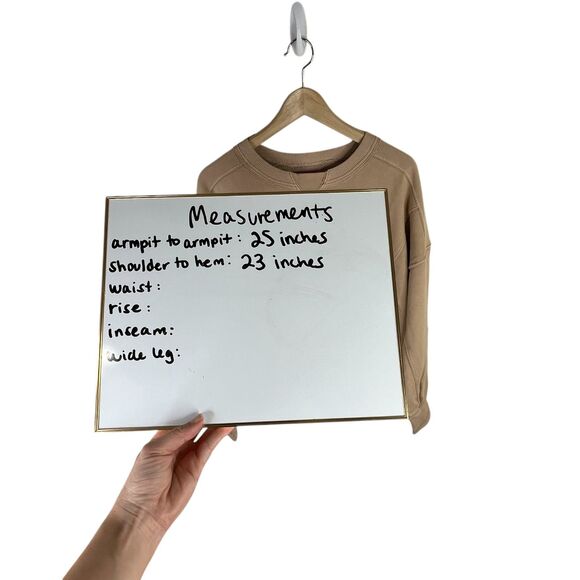 Measurements
armpit to armpit: 25 inches
shoulder to hem: 23 inches
waist:
rise:
inseam:
wide leg: